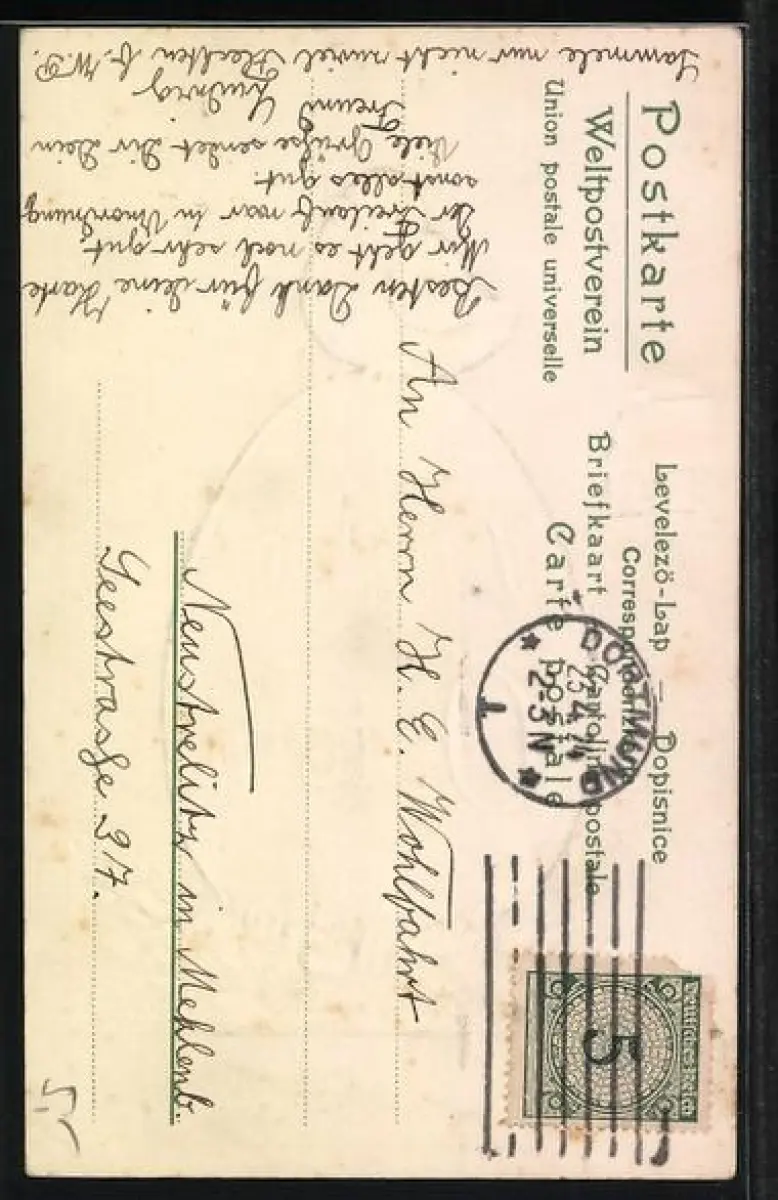 Postkarte
Weltpostverein
Union postale universelle
Levelező-Lap — Dopisnice
Correspondenzkarte
Briefkaart Cartolina postale
Carte postale
DORTMUND
25.4.24
2-3 N
1
Deutsches Reich
5
An Herrn H. E. Wohlfahrt
Neustrelitz in Meklenb.
Seestrasse 27.
Besten Dank für deine Karte
Mir geht es noch sehr gut.
Der Freilauf war in Unordnung
sonst alles gut.
Viele Grüße sendet Dir Dein
Freund
Ludwig
Sammele nur nicht zuviel Flechten b. W.P.
5,-